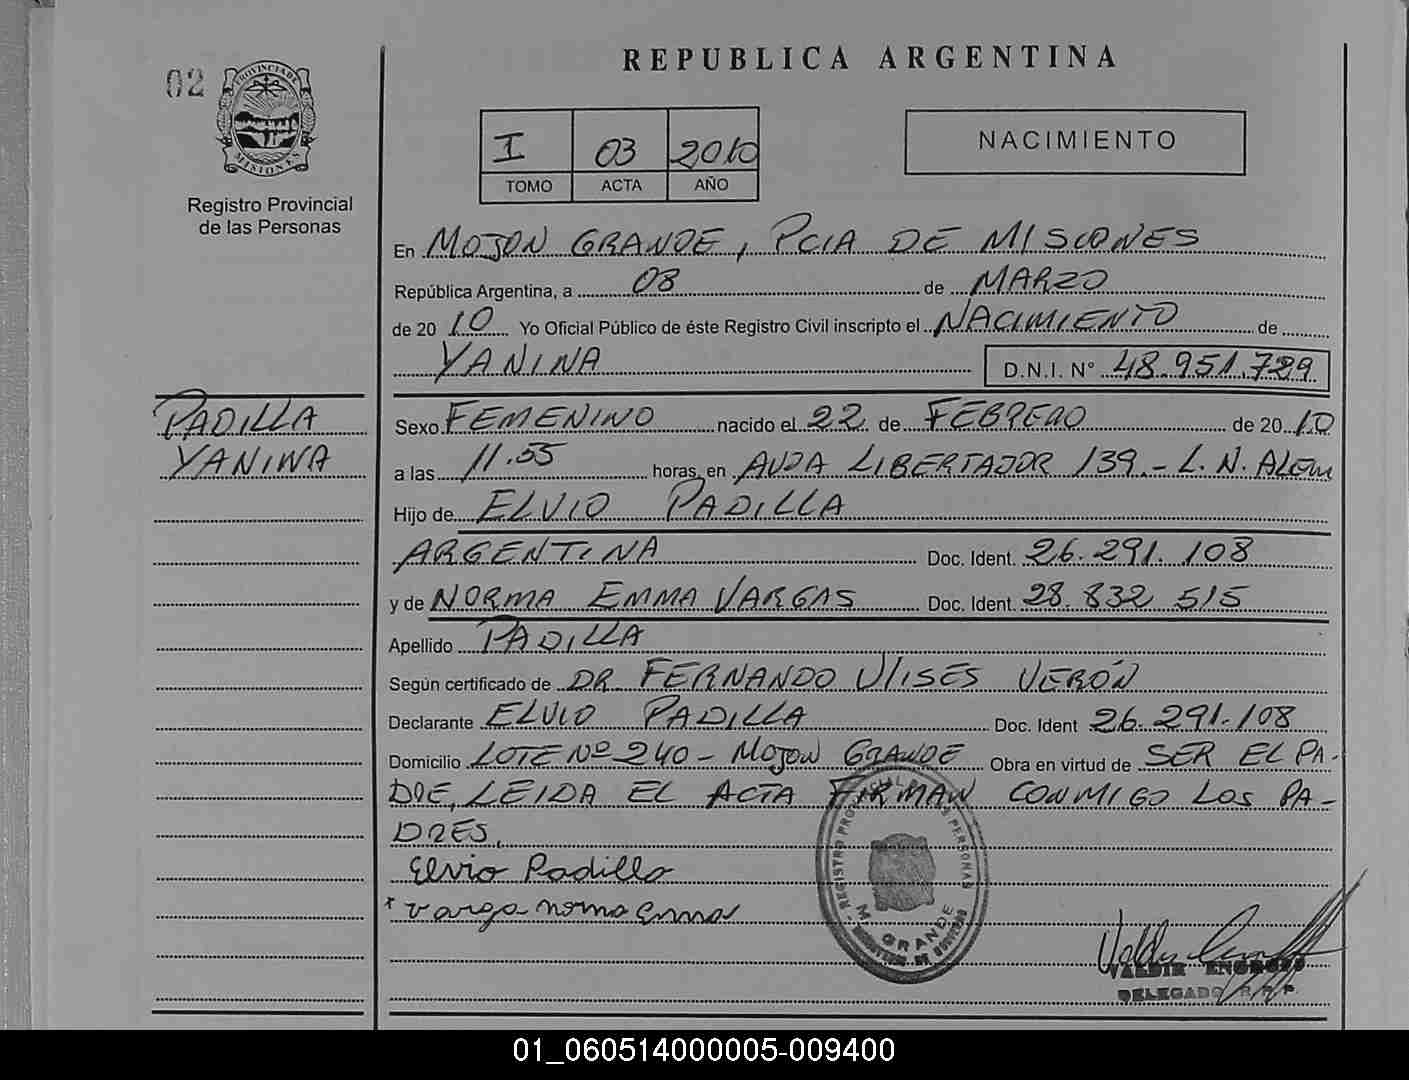 REPUBLICA ARGENTINA
02
PROVINCIA DE
MISIONES
Registro Provincial
de las Personas
I 03 2010
TOMO ACTA AÑO
NACIMIENTO
En MOJON GRANDE, PCIA DE MISIONES
República Argentina, a 08 de MARZO
de 20 10 Yo Oficial Público de éste Registro Civil inscripto el NACIMIENTO de
YANINA D.N.I. N° 48.951.729
PADILLA
YANINA
Sexo FEMENINO nacido el 22 de FEBRERO de 20 10
a las 11.55 horas, en AVDA LIBERTADOR 139.- L. N. ALEM
Hijo de ELVIO PADILLA
ARGENTINA Doc. Ident. 26.291.108
y de NORMA EMMA VARGAS Doc. Ident. 28.832 515
Apellido PADILLA
Según certificado de DR FERNANDO ULISES VERÓN
Declarante ELVIO PADILLA Doc. Ident 26.291.108
Domicilio LOTE Nº 240 - MOJON GRANDE Obra en virtud de SER EL PA-
DRE, LEIDA EL ACTA FIRMAN CONMIGO LOS PA-
DRES.
Elvio Padilla
* varga norma Emma
M. GRANDE
VALDIR
DELEGADO R.P.P.
01_060514000005-009400